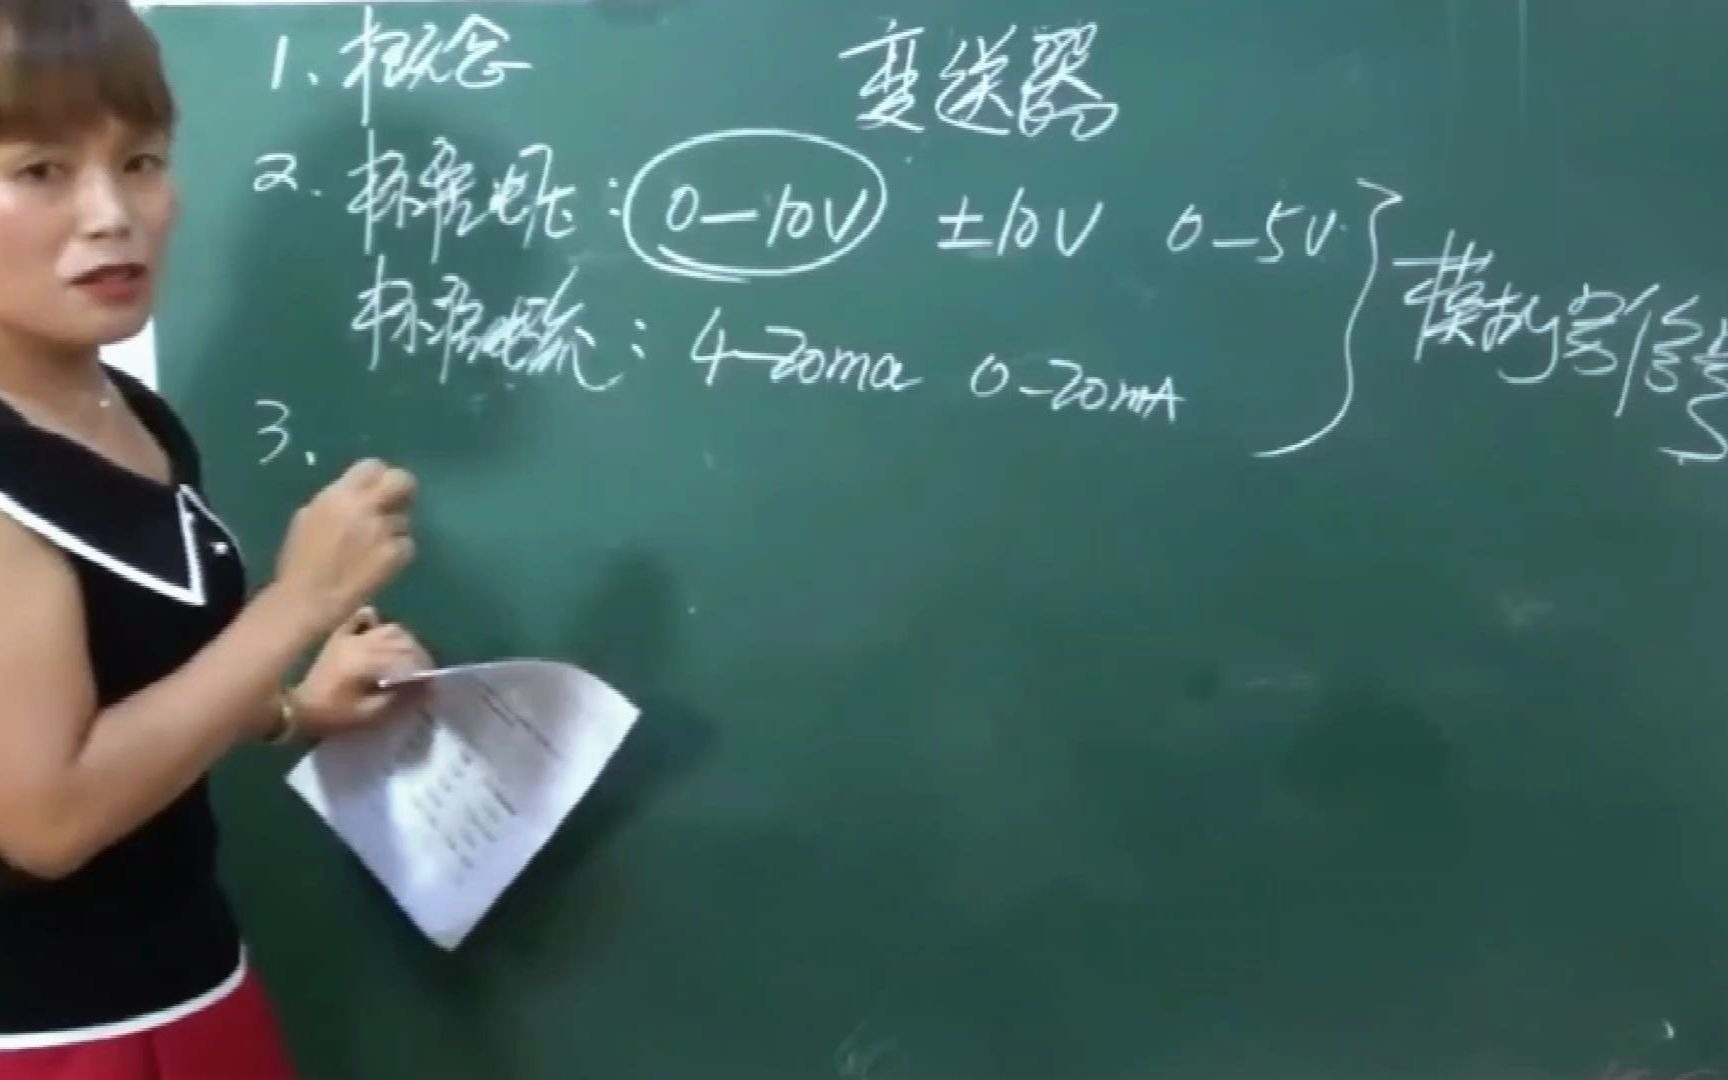 变送器
1、概念
2、标准电压：0—10V ±10V 0—5V
标准电流：4—20ma 0—20mA
模拟量信号
3、